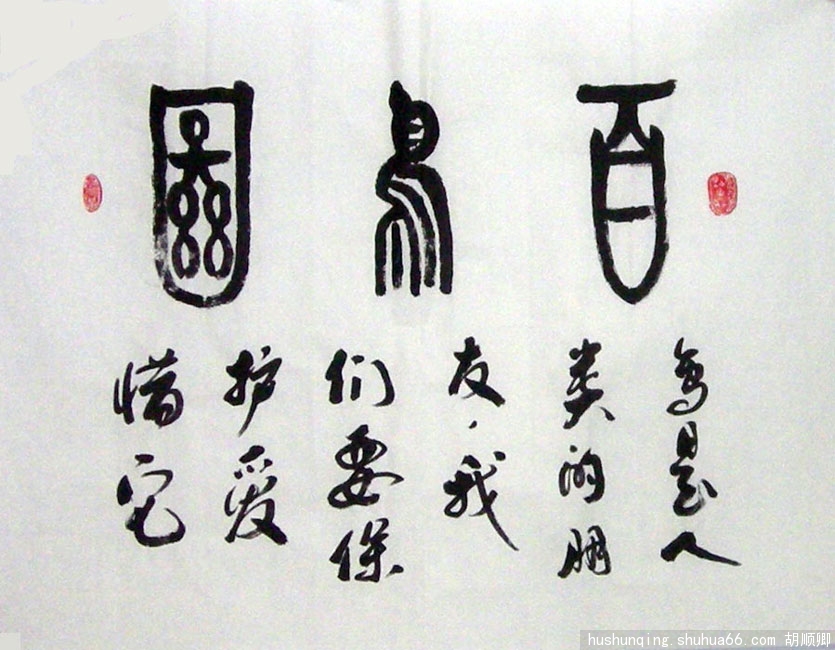 百鸟图
鸟是人
类的朋
友，我
们要保
护爱
惜它
hushunqing.shuhua66.com 胡顺卿